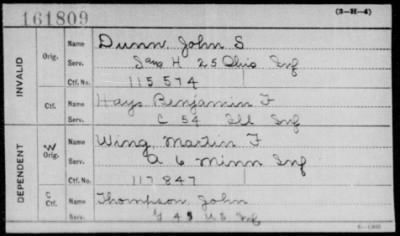 161809
(3-H-4)
INVALID
Orig.
Name Dunn, John S
Serv. H 25 Ohio Inf
Ctf. No. 115 574
Ctf.
Name Hays Benjamin F
Serv. C 54 Ill Inf
DEPENDENT
W
Orig.
Name Wing, Martin F
Serv. A 6 Minn Inf
Ctf. No. 117 847
C
Ctf.
Name Thompson John
Serv. 45 US Inf